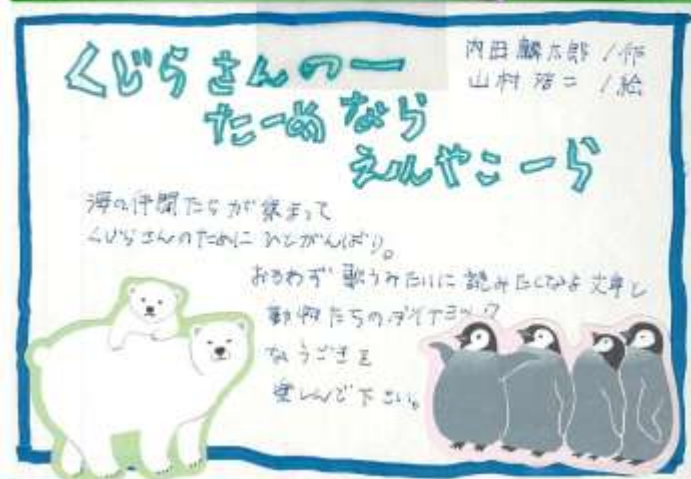 くじらさんのー
たーめなら
えんやこーら
内田麟太郎／作
山村浩二／絵
海の仲間たちが集まって
くじらさんのために ひとがんばり。
おもわず歌うみたいに読みたくなる文章と
動物たちのダイナミック
なうごきを
楽しんで下さい。